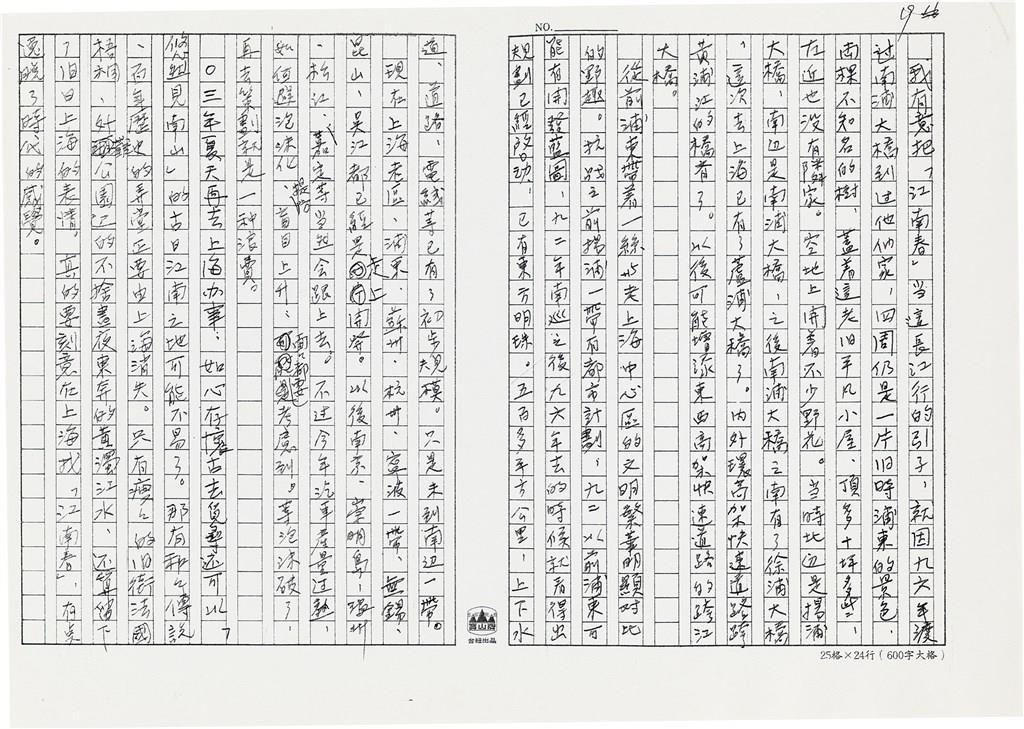 19
NO.
我有意把「江南春」当這長江行的引子，就因九六年渡
过南浦大橋到过他们家，四周仍是一片旧時浦東的景色，
两棵不知名的樹，蓋着這老旧平凡小屋，頂多十坪多些，
在近也没有隣家。空地上開着不少野花。当時北边是揚浦
大橋，南边是南浦大橋，之後南浦大橋之南有了徐浦大橋
，這次去上海已有了蘆浦大橋了。内外環高架快速道路跨
黄浦江的橋有了。以後可能增添東西高架快速道路的跨江
大橋。
從前浦東帶着一絲與老上海中心區的文明繁華明顯对比
的野趣。抗战之前揚浦一帶有都市計劃，九二以前浦東可
能有開發藍圖，九二年南巡之後九六年去的時候就看得出
規劃已經啟动，已有東方明珠。五百多平方公里，上下水
道、道路、電綫等已有了初步規模。只是未到南边一帶。
現在上海老區、浦東、蘇州、杭州、寧波一帶、無錫、
昆山、吴江都已經是走上開發。以後南京、崇明島、
、松江、嘉定等当然会跟上去。不过今年汽車產量过熱，
如何避泡沫化、盲目上升，两部都要考慮到。等泡沫破了，
再去策劃就是一种浪費。
〇三年夏天再去上海办事，如心存懷古去覓尋还可以「
悠然見南山」的古日江南之地可能不易了。那有和々傳說
、百年歷史的弄堂正要由上海消失。只有疲々的旧街法國
梧桐、外灘公園江的不捨晝夜東奔的黄濁江水，还算留下
了旧日上海的表情。真的要刻意在上海找「江南春」，有点
逸脫了時代的感覺。
高山牌
台紐出品
25格×24行（600字大格）